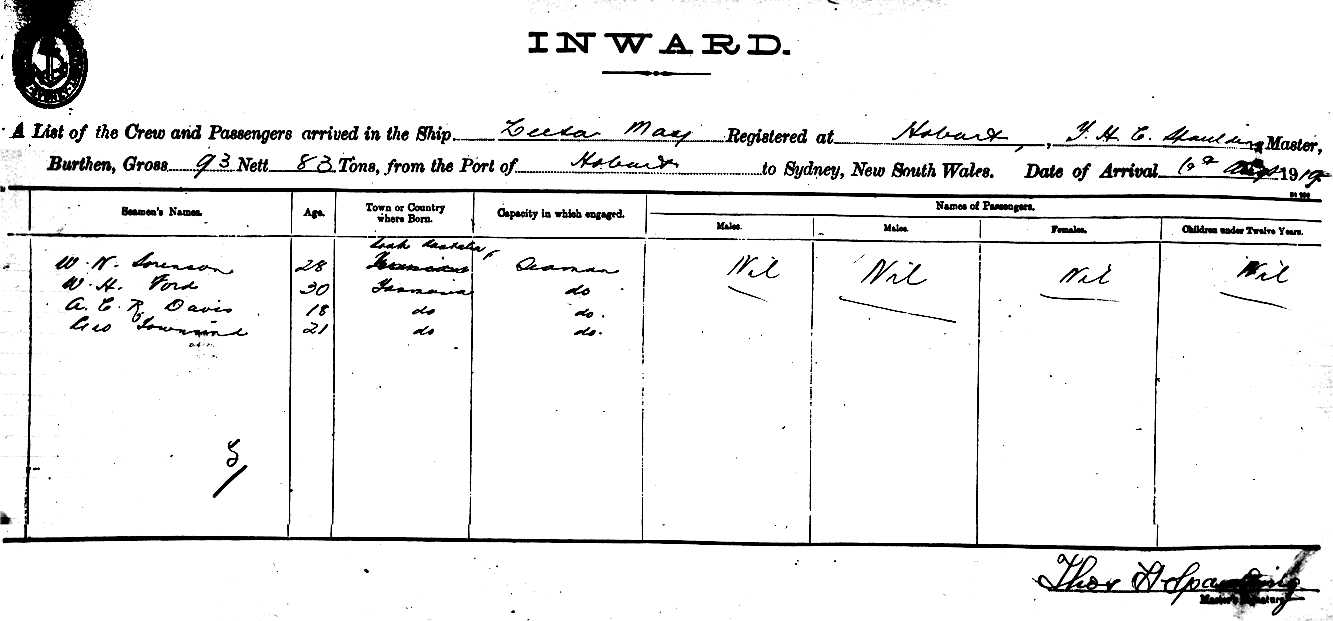 SYDNEY
INWARD.
A List of the Crew and Passengers arrived in the Ship May Registered at Hobart, T. H. E. Spaulding Master,
Burthen, Gross 93 Nett 83 Tons, from the Port of Hobart to Sydney, New South Wales. Date of Arrival 6th 191
Seamen's Names. Age. Town or Country where Born. Capacity in which engaged. Names of Passengers.
Males. Males. Females. Children under Twelve Years.
W. N. Sorenson 28 Seaman Nil Nil Nil Nil
W. H. Ford 30 Tasmania do
A. E. R. Davis 18 do do.
Geo Townsend 21 do do.
Thos H Spaulding
Master's Signature